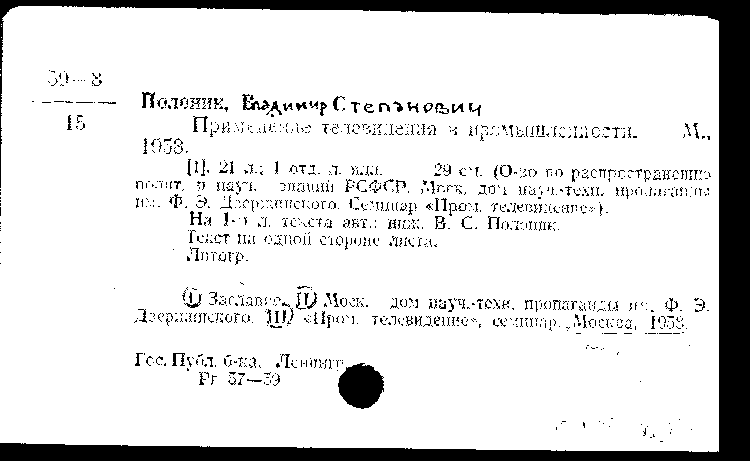 59—8
15
Полоник, Владимир Степанович
Применение телевидения в промышленности. М.,
1958.
[1], 21 л.; 1 отд. л. илл. 29 см. (О-во по распространению
полит. и науч. знаний РСФСР. Моск. дом науч.-техн. пропаганды
им. Ф. Э. Дзержинского. Семинар «Пром. телевидение»).
На 1-м л. текста авт.: инж. В. С. Полоник.
Текст на одной стороне листа.
Литогр.
I Заглавие. II Моск. дом науч.-техн. пропаганды им. Ф. Э.
Дзержинского. III «Пром. телевидение», семинар. Москва, 1958.
Гос. Публ. б-ка. Ленингр.
Рг 57—59